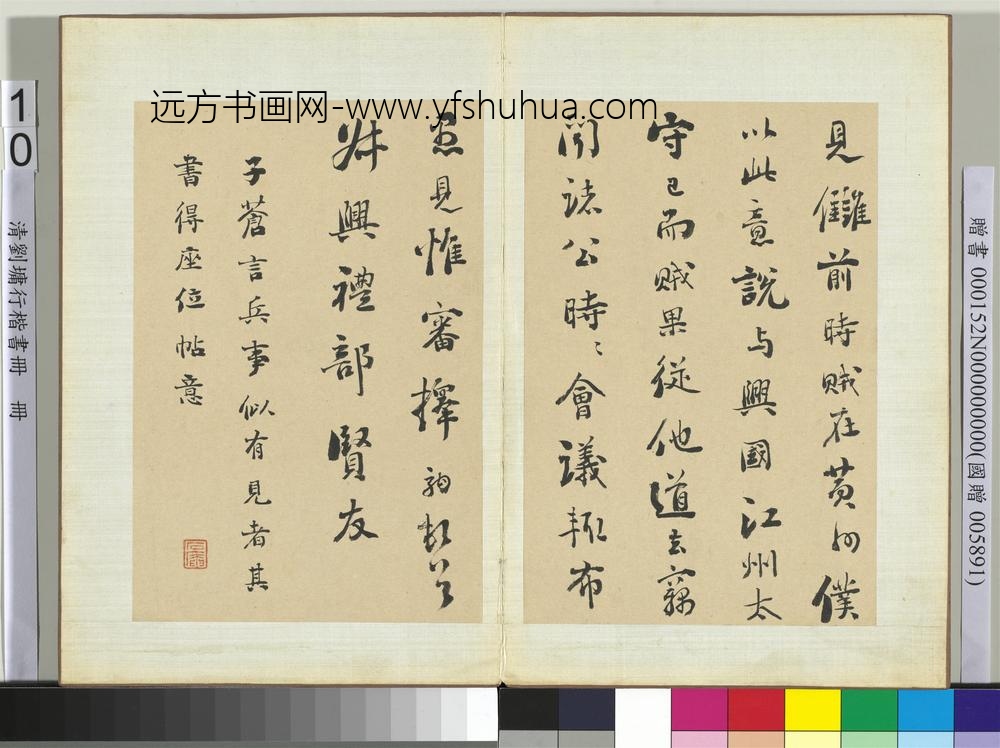 远方书画网-www.yfshuhua.com
見讎前時賊在黃州僕
以此意說与興國江州太
守已而賊果從他道去竊
聞諸公時〻會議輒布
愚見惟審擇
叔興禮部賢友
子蒼言兵事似有見者其
書得座位帖意
10
清劉墉行楷書冊 冊
贈書 000152N000000000(國贈 005891)